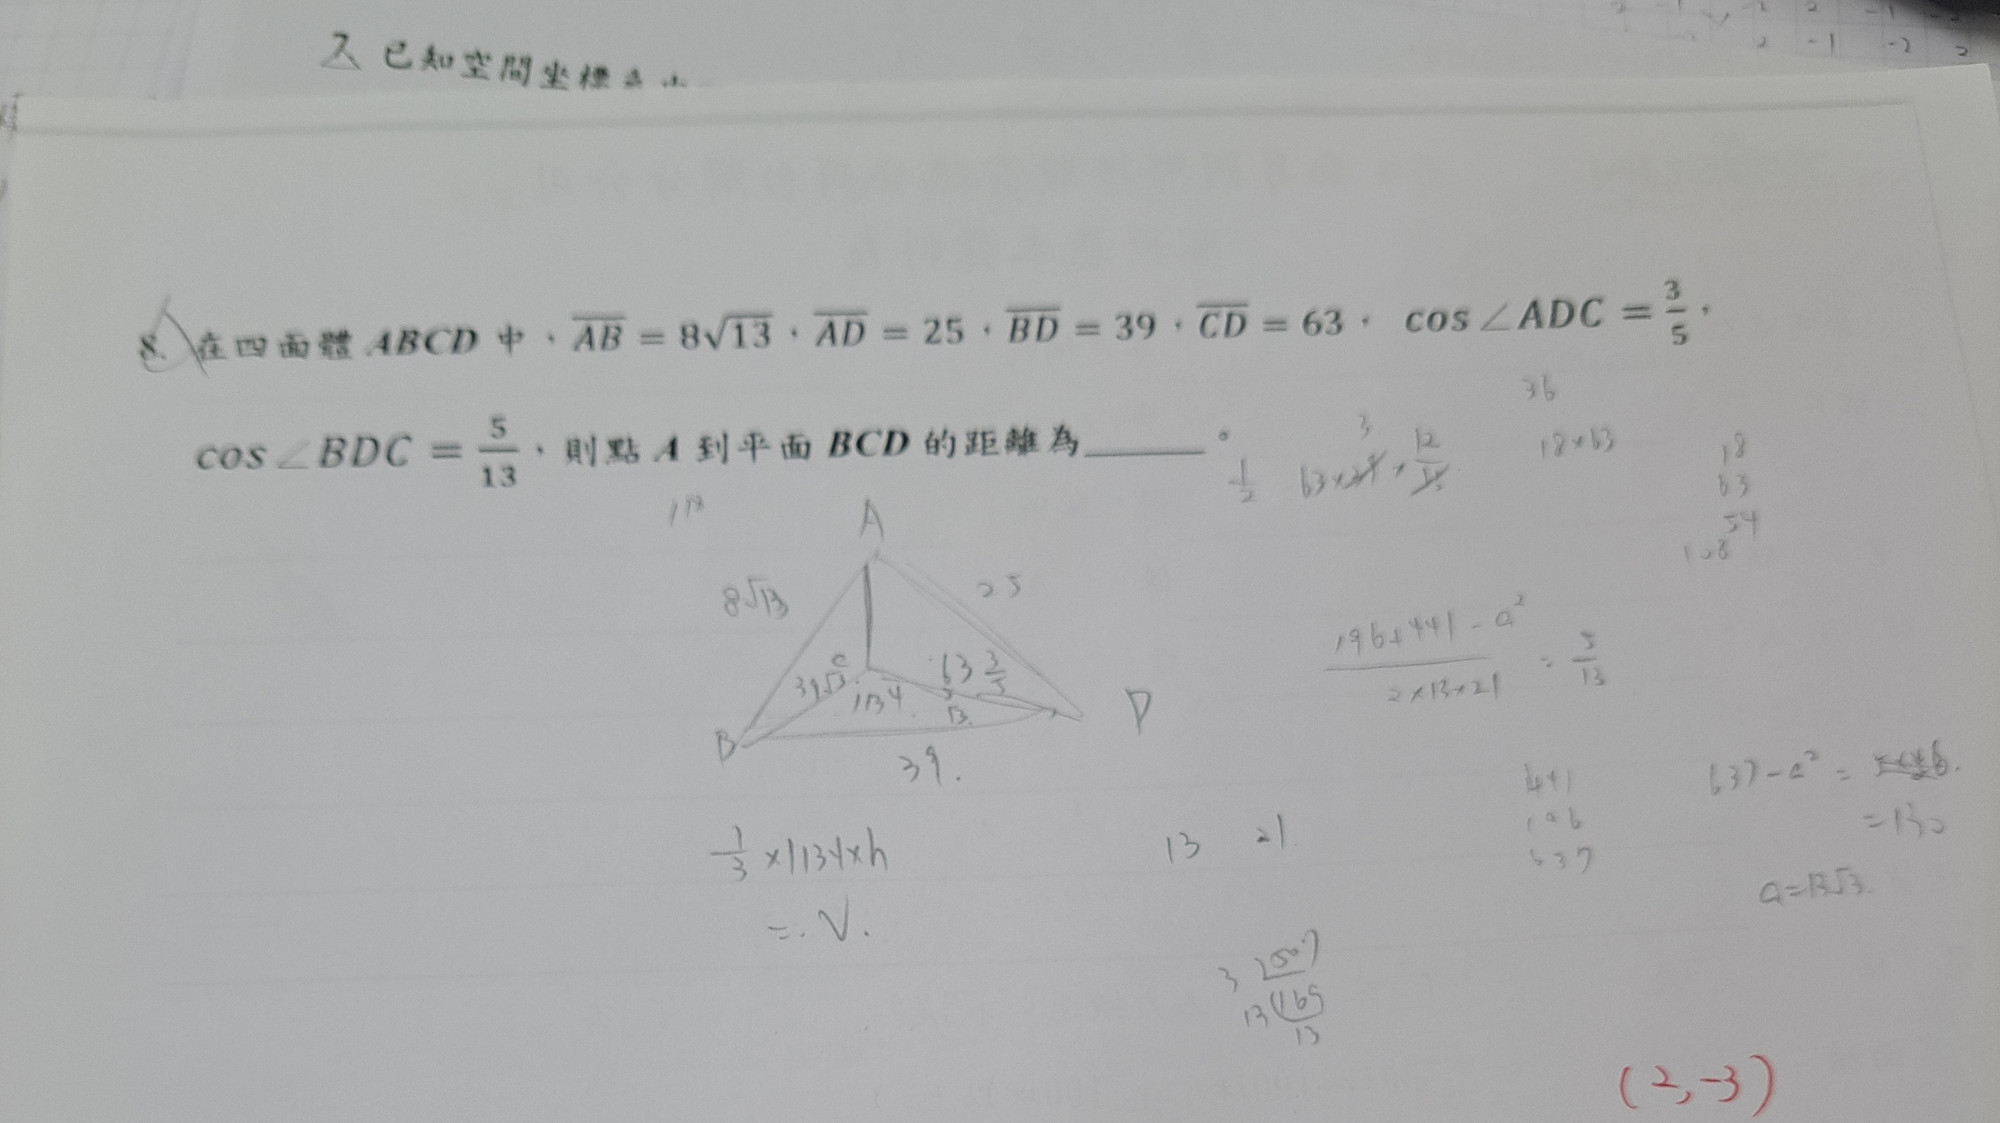 已知空間坐標
2 -1 -2 2
8. 在四面體 ABCD 中，AB = 8√13，AD = 25，BD = 39，CD = 63，cos∠ADC = 3/5，
cos∠BDC = 5/13，則點 A 到平面 BCD 的距離為______。
36
3
1/2 63×39×12/13
18×63
18
63
54
108
A
8√13
25
C
63 3/5
39√3
1134
5/13
B
D
39.
(196+441-a²)/(2×13×21) = 5/13
441
196
637
637-a² =
=130
a=13√3.
1/3×1134×h
=.V.
13 21
3 507
13 169
13
(2,-3)